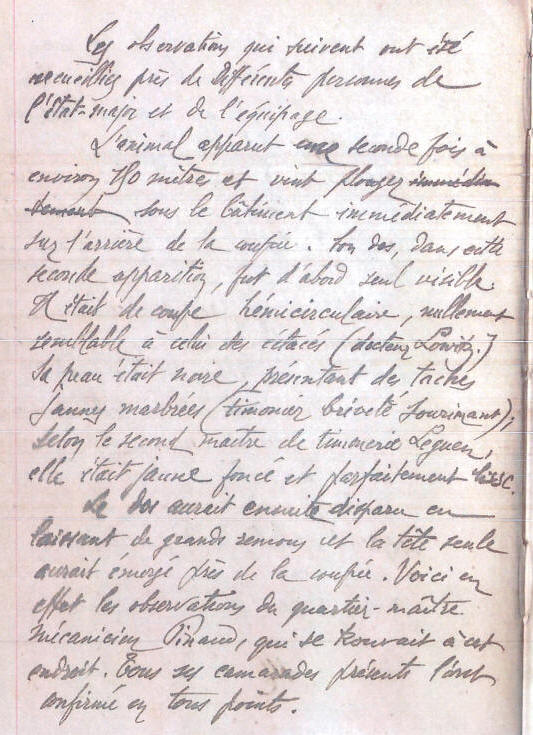 Les observations qui suivent ont été
recueillies près de différentes personnes de
l'état-major et de l'équipage.
L'animal apparut une seconde fois à
environ 150 mètres et vint plonger immédia
tement sous le bâtiment immédiatement
sur l'arrière de la coupée. Son dos, dans cette
seconde apparition, fut d'abord seul visible.
Il était de coupe hémicirculaire, nullement
semblable à celui des cétacés (docteur Lowitz)
Sa peau était noire, présentant des taches
jaunes marbrées (timonier bréveté Sourimant);
selon le second maître de timonerie Leguen,
elle était jaune foncé et parfaitement lisse.
Le dos aurait ensuite disparu en
laissant de grands remous et la tête seule
aurait émergé près de la coupée. Voici en
effet les observations du quartier-maître
mécanicien Pinaud, qui se trouvait à cet
endroit. Tous ses camarades présents l'ont
confirmé en tous points.